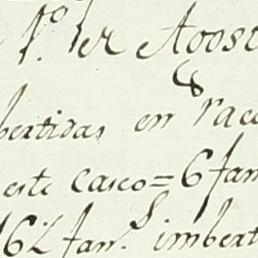 1.º er Agost
bertidas en rac
este caseo = 6 fan
162 fan.s imbert